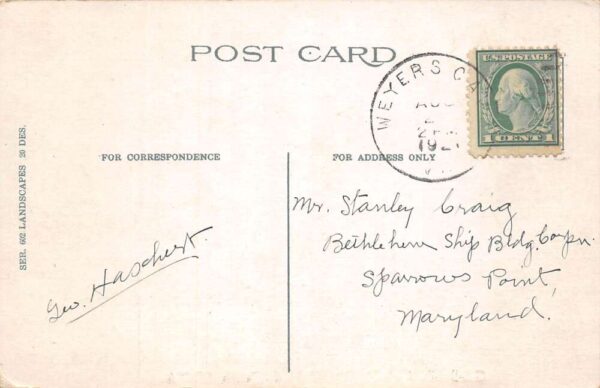 POST CARD
WEYERS CA
AUG
2 PM
1921
V
U.S. POSTAGE
1 CENT 1
FOR CORRESPONDENCE
FOR ADDRESS ONLY
SER. 602 LANDSCAPES 20 DES.
Geo. Haschert.
Mr. Stanley Craig
Bethlehem Ship Bldg. Corpn.
Sparrows Point,
Maryland.